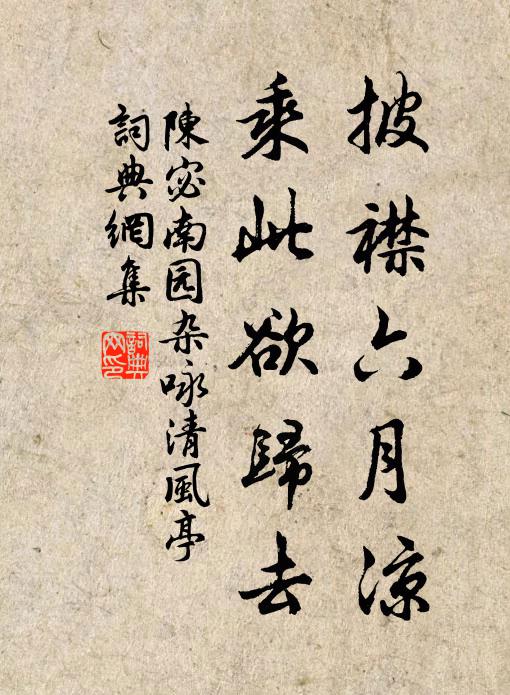 披襟六月凉
乘此欲歸去
陳宓南园杂咏清風亭
詞典網集
詞典
网印